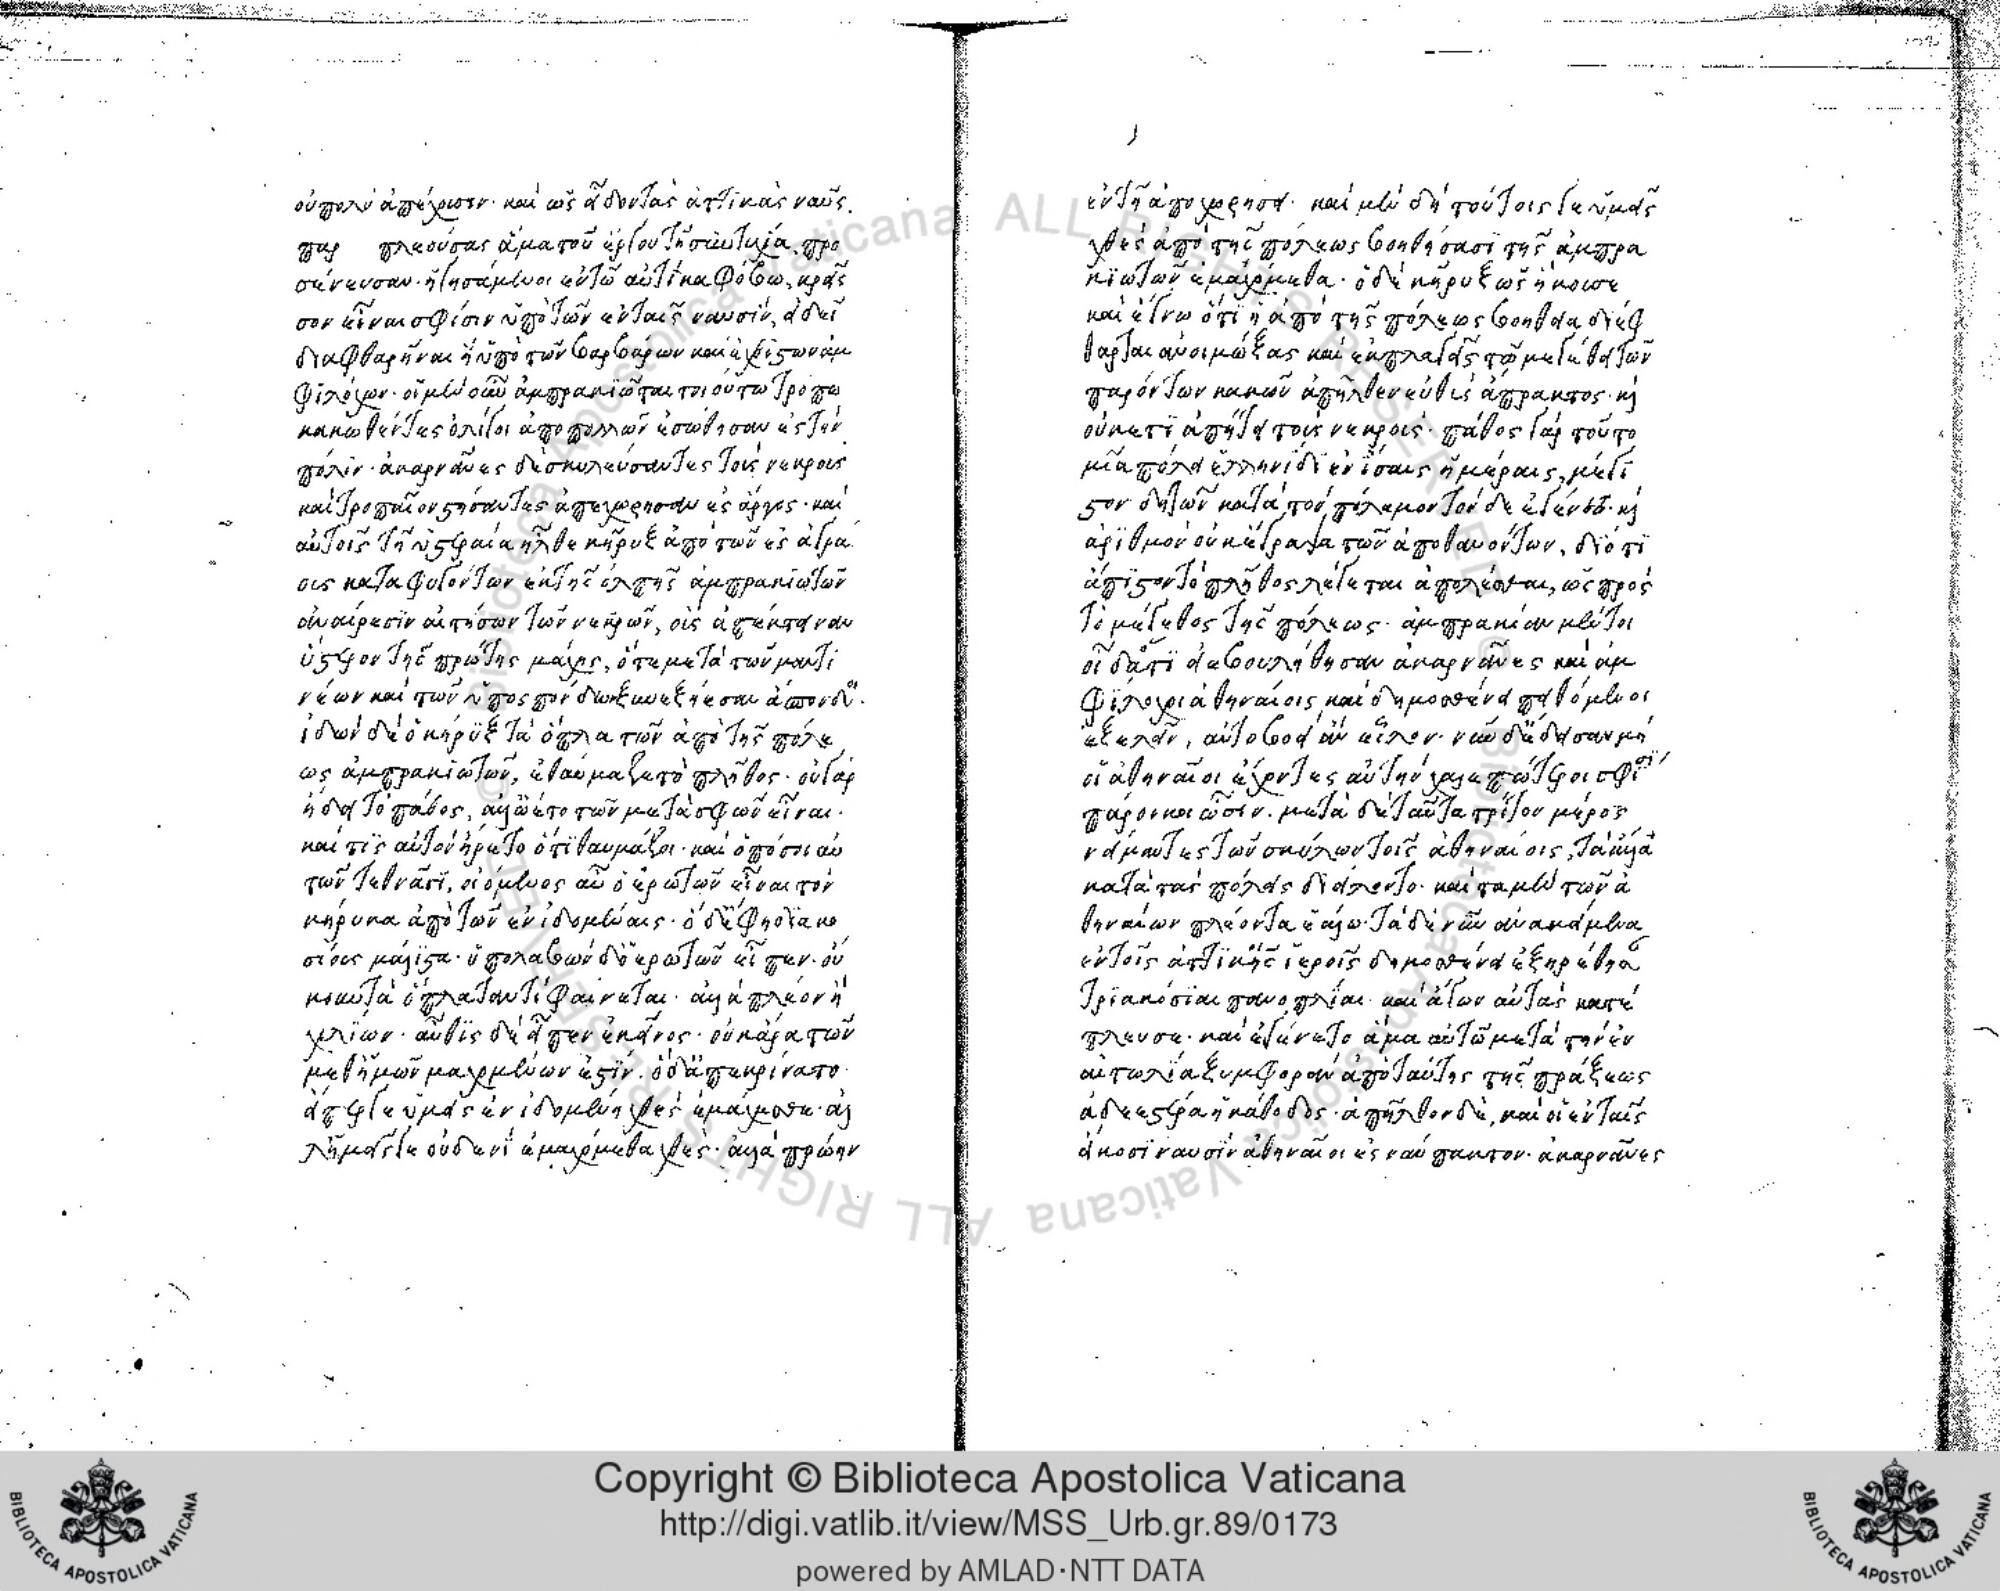 οὐ πολὺ ἀπέχουσαν· καὶ ὡς εἶδον τὰς ἀττικὰς ναῦς
παρ πλεούσας ἅμα τοῦ ἔργου τῇ συντυχίᾳ, προ
σένευσαν· ἡγησάμενοι ἐν τῷ αὐτίκα φόβῳ, κρεῖσ
σον εἶναι σφίσιν ὑπὸ τῶν ἐν ταῖς ναυσίν, εἰ δεῖ
διαφθαρῆναι ἢ ὑπὸ τῶν βαρβάρων καὶ ἐχθίστων ἀμ
φιλόχων· οἱ μὲν οὖν ἀμπρακιῶται τοιούτῳ τρόπῳ
κακωθέντες ὀλίγοι ἀπὸ πολλῶν ἐσώθησαν ἐς τὴν
πόλιν· ἀκαρνᾶνες δὲ σκυλεύσαντες τοὺς νεκροὺς
καὶ τροπαῖον στήσαντες ἀπεχώρησαν ἐς ἄργος· καὶ
αὐτοῖς τῇ ὑστεραίᾳ ἦλθε κῆρυξ ἀπὸ τῶν ἐς ἀγρα
οις καταφυγόντων ἐκ τῆς ὄλπης ἀμπρακιωτῶν
ἀναίρεσιν αἰτήσων τῶν νεκρῶν, οὓς ἀπέκτειναν
ὕστερον τῆς πρώτης μάχης, ὅτε μετὰ τῶν μαντι
νέων καὶ τῶν ὑποσπόνδων ξυνεξῄεσαν ἄσπονδοι·
ἰδὼν δὲ ὁ κήρυξ τὰ ὅπλα τῶν ἀπὸ τῆς πόλε
ως ἀμπρακιωτῶν, ἐθαύμαζε τὸ πλῆθος· οὐ γὰρ
ᾔδει τὸ πάθος, ἀλλ' ᾤετο τῶν μετὰ σφῶν εἶναι·
καί τις αὐτὸν ἤρετο ὅτι θαυμάζοι· καὶ ὁπόσοι αὐ
τῶν τεθνᾶσι, οἰόμενος αὖ ὁ ἐρωτῶν εἶναι τὸν
κήρυκα ἀπὸ τῶν ἐν ἰδομεναῖς· ὁ δ' ἔφη διακο
σίους μάλιστα· ὑπολαβὼν δ' ὁ ἐρωτῶν εἶπεν· οὐ
κουν τὰ ὅπλα ταυτὶ φαίνεται· ἀλλὰ πλέον ἢ
χιλίων· αὖθις δὲ εἶπεν ἐκεῖνος· οὐκ ἄρα τῶν
μεθ' ἡμῶν μαχομένων ἐστίν· ὁ δ' ἀπεκρίνατο·
εἴπερ γε ὑμεῖς ἐν ἰδομένῃ χθὲς ἐμάχεσθε· ἀλλ'
ἡμεῖς γε οὐδενὶ ἐμαχόμεθα χθές· ἀλλὰ πρώην
ἐν τῇ ἀποχωρήσει· καὶ μὲν δὴ τούτοις γε ἡμεῖς
χθὲς ἀπὸ τῆς πόλεως βοηθήσασι τῆς ἀμπρα
κιωτῶν ἐμαχόμεθα· ὁ δὲ κῆρυξ ὡς ἤκουσε
καὶ ἔγνω ὅτι ἡ ἀπὸ τῆς πόλεως βοήθεια διέφ
θαρται ἀνοιμώξας καὶ ἐκπλαγεὶς τῷ μεγέθει τῶν
παρόντων κακῶν ἀπῆλθεν εὐθὺς ἄπρακτος· καὶ
οὐκέτι ἀπῄτει τοὺς νεκρούς· πάθος γὰρ τοῦτο
μιᾷ πόλει ἑλληνίδι ἐν ἴσαις ἡμέραις, μέγι
στον δὴ τῶν κατὰ τὸν πόλεμον τόνδε ἐγένετο· καὶ
ἀριθμὸν οὐκ ἔγραψα τῶν ἀποθανόντων, διότι
ἄπιστον τὸ πλῆθος λέγεται ἀπολέσθαι, ὡς πρὸς
τὸ μέγεθος τῆς πόλεως· ἀμπρακίαν μέντοι
οἶδα ὅτι εἰ ἐβουλήθησαν ἀκαρνᾶνες καὶ ἀμ
φίλοχοι ἀθηναίοις καὶ δημοσθένει πειθόμενοι
ἐξελεῖν, αὐτοβοεὶ ἂν εἷλον· νῦν δ' ἔδεισαν μὴ
οἱ ἀθηναῖοι ἔχοντες αὐτὴν χαλεπώτεροι σφίσι
πάροικοι ὦσιν· μετὰ δὲ ταῦτα τρίτον μέρος
νείμαντες τῶν σκύλων τοῖς ἀθηναίοις, τὰ ἄλλα
κατὰ τὰς πόλεις διείλοντο· καὶ τὰ μὲν τῶν ἀ
θηναίων πλέοντα ἑάλω· τὰ δὲ νῦν ἀνακείμενα
ἐν τοῖς ἀττικοῖς ἱεροῖς δημοσθένει ἐξῃρέθησαν
τριακόσιαι πανοπλίαι· καὶ ἄγων αὐτὰς κατέ
πλευσε· καὶ ἐγένετο ἅμα αὐτῷ μετὰ τὴν ἐν
αἰτωλίᾳ ξυμφορὰν ἀπὸ ταύτης τῆς πράξεως
ἀδεεστέρα ἡ κάθοδος· ἀπῆλθον δὲ, καὶ οἱ ἐν ταῖς
εἴκοσι ναυσὶν ἀθηναῖοι ἐς ναύπακτον· ἀκαρνᾶνες
Copyright © Biblioteca Apostolica Vaticana
http://digi.vatlib.it/view/MSS_Urb.gr.89/0173
powered by AMLAD·NTT DATA